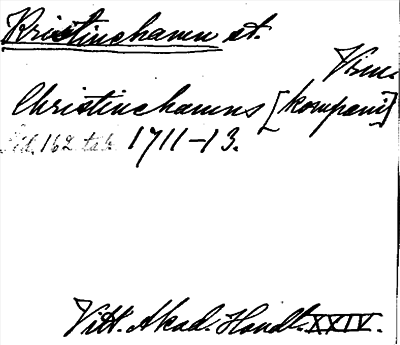 Kristinehamn st.
Vrm.
Christinehamns [kompani]
Sid. 162 tab. 1711-13.
Vitt. Akad. Handl. XXIV.